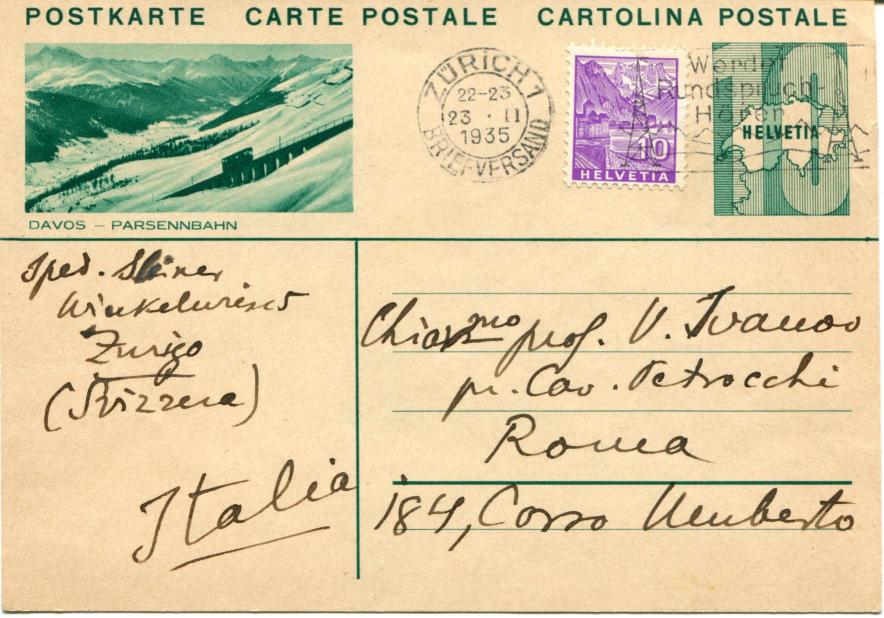 POSTKARTE CARTE POSTALE CARTOLINA POSTALE
DAVOS – PARSENNBAHN
ZÜRICH 1
22-23
23 · II
1935
BRIEFVERSAND
10
HELVETIA
Werdet
Rundspruch-
Hörer
10
HELVETIA
Sped. Steiner
Zurigo
(Svizzera)
Italia
Chiar.mo prof. V. Ivanov
pr. Cav. Petrocchi
Roma
184, Corso Umberto